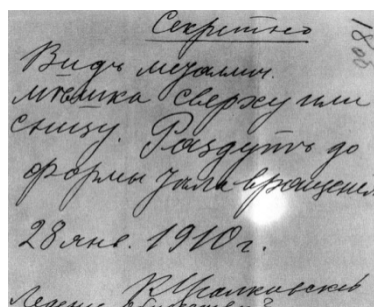 Секретно
1800
Видъ металлич.
мѣшка сверху или
снизу. Раздутъ до
формы тѣла вращенія
28 янв. 1910 г.
К Циолковскій